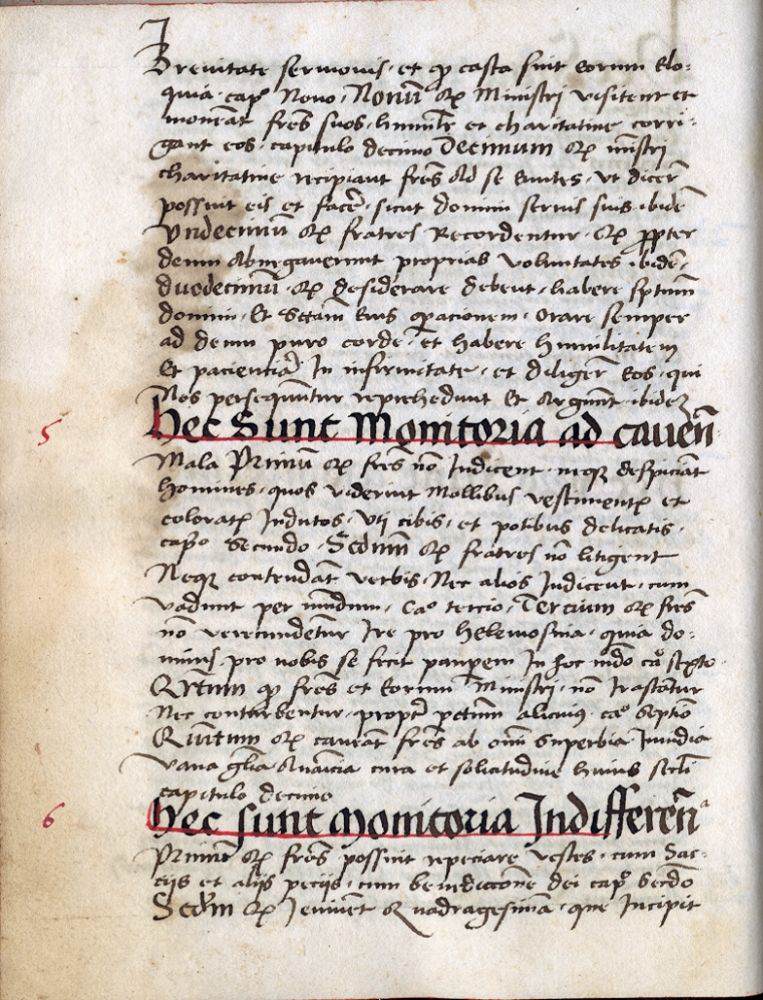 Breuitate sermonis · et ꝙ casta sint eorum elo-
quia · capᵒ Nono · Nonū ꝙ Ministri visitent et
moneāt frēs suos · humilr̄ et charitatiue corri-
gant eos · capitulo decimo Decimum ꝙ mīstri
charitatiue recipiant frēs ad se euntes · vt dicer̄
possint eis et facē · sicut domini seruis suis · ibidē
Vndecimū ꝙ fratres Recordentur · ꝙ ꝓpter
deum abnegauerunt proprias voluntates · ibidē ·
duodecimū ꝙ desiderare debent · habere sp̄tum
domini · Et sc̄tam eius oꝑacionem · orare semper
ad deum puro corde · et habere humilitatem
Et pacienciā In infirmitate · et diliger̄ eos · qui
Nos persequuntur reprehēdunt Et Arguūt · ibidez
5 hec sunt Monitoria ad cauēn̄
Mala Primū ꝙ frēs nō Iudicent · neqꝫ despiciāt
homines · quos viderint Mollibus vestimentꝭ et
coloratꝭ Indutos · vti cibis · et potibus delicatis ·
capᵒ secundo · Sēdum ꝙ fratres nō litigent
Neqꝫ contendāt verbis · Nec alios Iudicent · cum
vadunt per mūdum · caᵒ tercio · Tercium ꝙ frēs
nō verecundētur Ire pro helemosina · quia do-
minus · pro nobis se fecit pauꝑem In hoc mūdo caᵒ sexto ·
Qrtum ꝙ frēs et eorum Ministri · nō Irascātur
Nec conturbentur · proptꝰ pctūm alicuiꝰ · caᵒ septīo
Quītum ꝙ caueāt frēs ab om̄i superbia Inuidia
vana gl̄ia Auaricia cura et solicitudine huius sēcli
capitulo decimo
6 hec sunt Monitoria Indifferēnᵃ
Primū ꝙ frēs · possint repeciare vestes · cum Sac-
ciis et aliis peciis · cum benediccōne dei capᵒ secdō
Secdm ꝙ Ieiunēt Quadragesimā · que Incipit